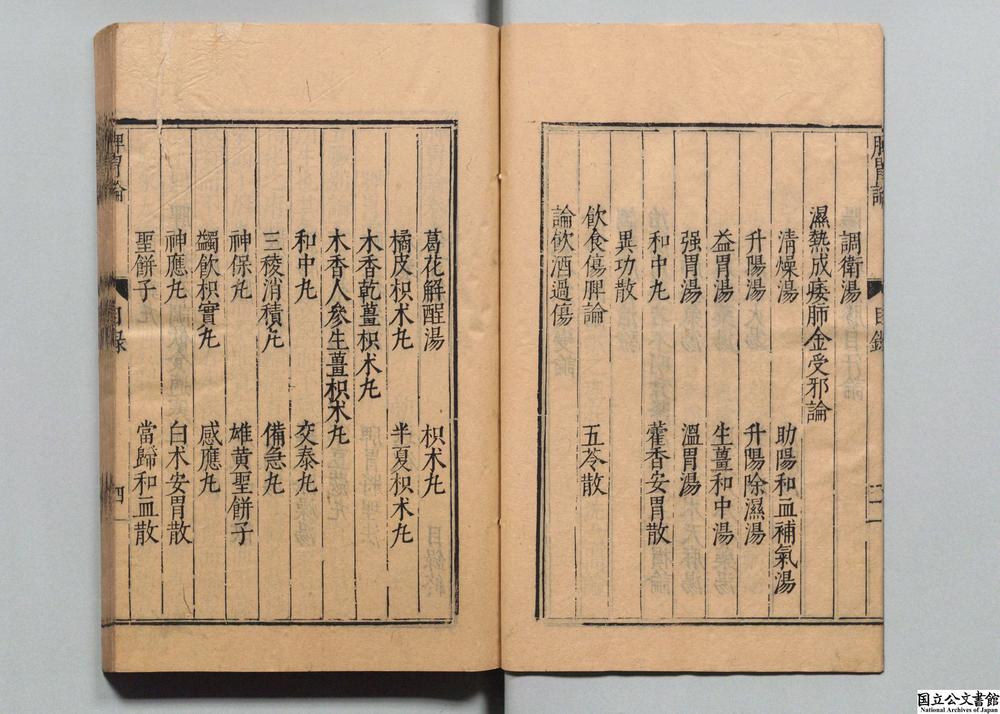 脾胃論 目錄
調衛湯
濕熱成痿肺金受邪論
清燥湯 助陽和血補氣湯
升陽湯 升陽除濕湯
益胃湯 生薑和中湯
强胃湯 溫胃湯
和中丸 藿香安胃散
異功散
飲食傷脾論
五苓散
論飲酒過傷
葛花解酲湯 枳术丸
橘皮枳术丸 半夏枳术丸
木香乾薑枳术丸
木香人參生薑枳术丸
和中丸 交泰丸
三稜消積丸 備急丸
神保丸 雄黄聖餅子
蠲飲枳實丸 感應丸
神應丸 白术安胃散
聖餅子 當歸和血散
脾胃論 目錄 四
国立公文書館
National Archives of Japan